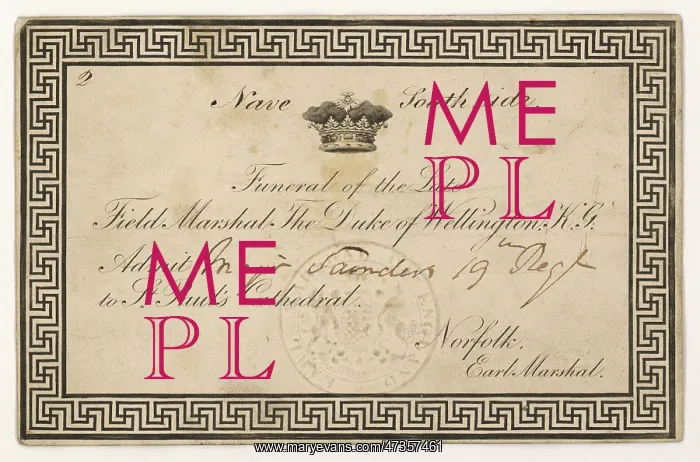 2
Nave South Side
Funeral of the Late
Field Marshal The Duke of Wellington, K.G.
Admit Saunders 19th Regt
to St. Paul's Cathedral.
Norfolk,
Earl Marshal.
EARL MARSHAL OF ENGLAND
ME
PL
ME
PL
www.maryevans.com/47357461